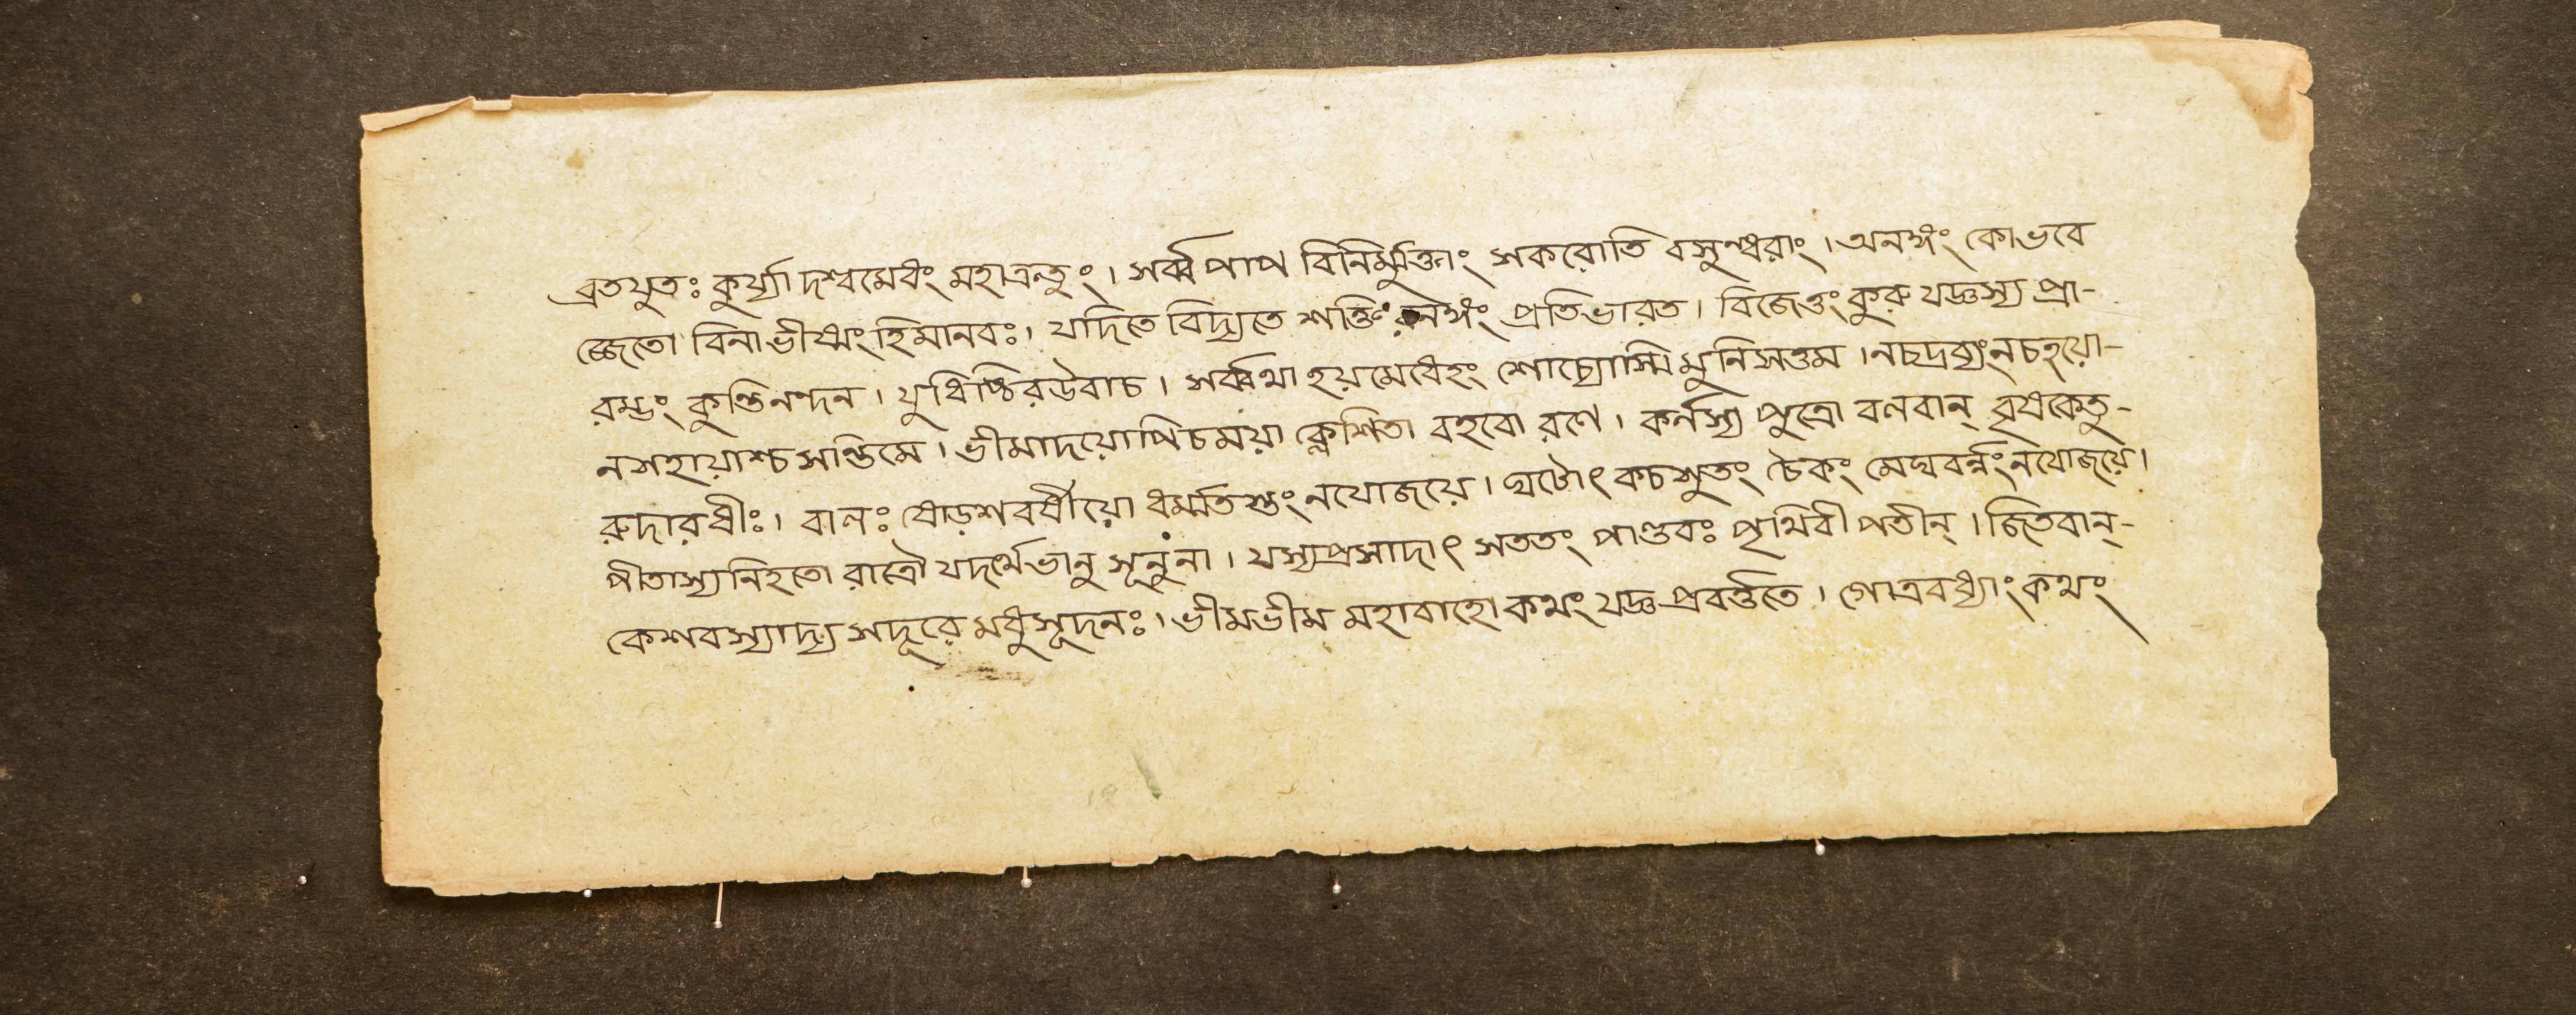 ব্রতযুতঃ কুর্য্যাদশ্বমেধং মহাত্রন্তুং। সর্ব্বপাপ বিনির্ম্মুক্তাং সকরোতি বসুন্ধরাং। অনঙ্গং কোভবে
জ্জেতো বিনাভীষ্মংহিমানবঃ। যদিতে বিদ্যতে শক্তিরনঙ্গং প্রতিভারত। বিজেত্তং কুরু যজ্ঞস্য প্রা-
রম্ভং কুন্তিনন্দন। যুধিষ্ঠিরউবাচ। সর্ব্বথা হয়মেধেহং শোচ্যোস্মি মুনিসত্তম। নচদ্রব্যংনচহয়ো-
নসহায়াশ্চ সন্তিমে। ভীমাদয়োপিচময়া ক্লেশিতা বহবো রণে। কর্নস্য পুত্রো বলবান্ বৃষকেতু-
রুদারধীঃ। বালঃ ষোড়শবর্ষীয়ো ধর্ম্মতিশ্তং নযোজয়ে। ঘটোৎকচসুতং চৈকং মেঘবর্ন্নং নযোজয়ে।
পীতাস্যনিহতো রাত্রৌ যদর্থেভানু সূনুনা। যস্যপ্রসাদাৎ সততং পাণ্ডবঃ পৃথিবী পতীন্। জিতবান্-
কেশবস্যাদ্য সদূরে মধুসূদনঃ। ভীমভীম মহাবাহো কথং যজ্ঞপ্রবর্ত্ততে। গোত্রবধ্যাং কথং